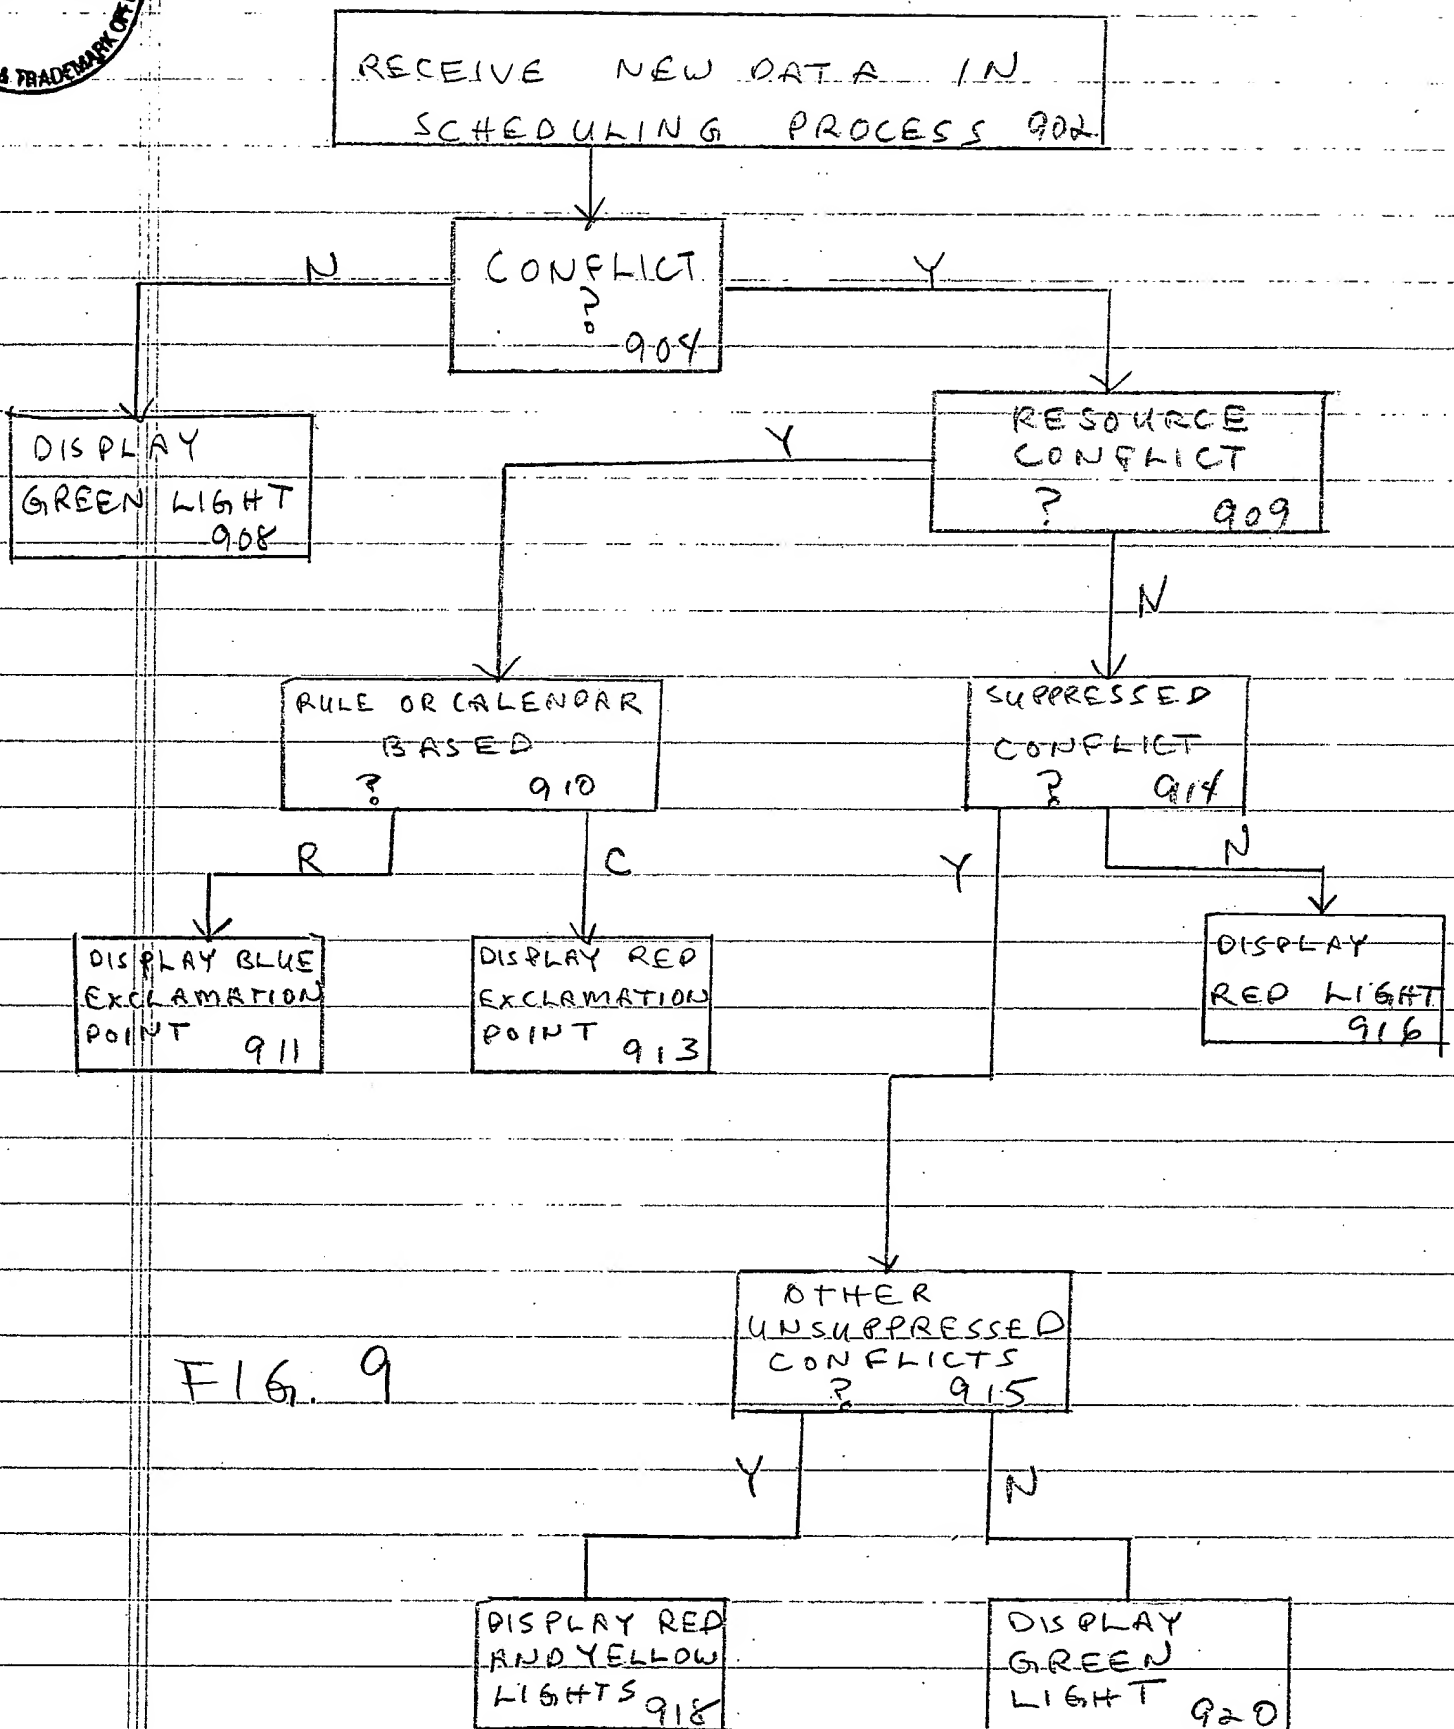 & TRADEMARK OFFI
RECEIVE NEW DATA IN
SCHEDULING PROCESS 902
CONFLICT
?
904
N
Y
DISPLAY
GREEN LIGHT
908
RESOURCE
CONFLICT
? 909
Y
N
RULE OR CALENDAR
BASED
? 910
SUPPRESSED
CONFLICT
? 914
R
C
Y
N
DISPLAY BLUE
EXCLAMATION
POINT 911
DISPLAY RED
EXCLAMATION
POINT 913
DISPLAY
RED LIGHT
916
OTHER
UNSUPPRESSED
CONFLICTS
? 915
FIG. 9
Y
N
DISPLAY RED
AND YELLOW
LIGHTS 918
DISPLAY
GREEN
LIGHT 920